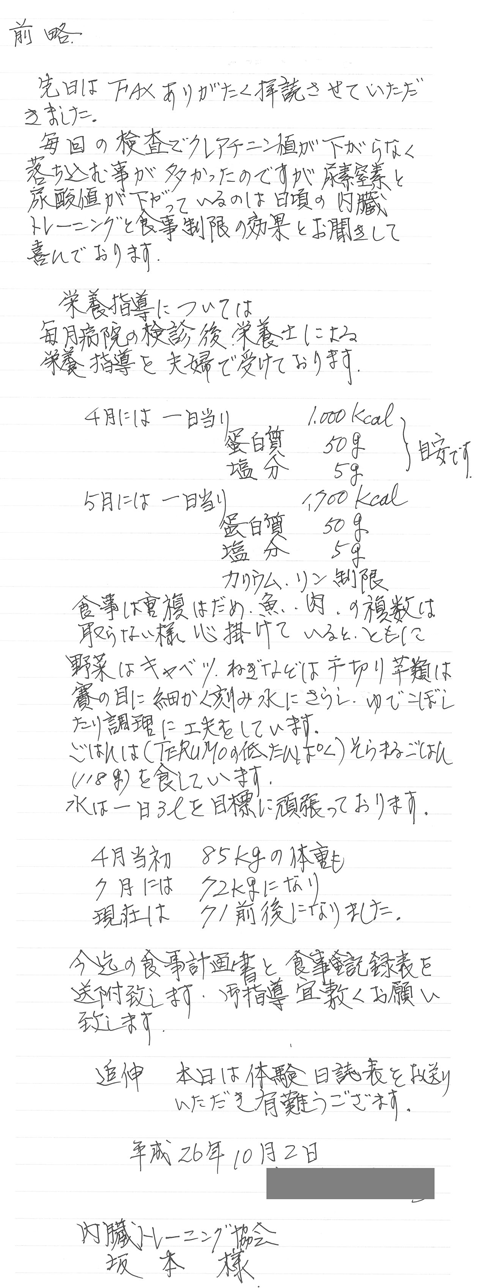 前略
先日は FAXありがたく拝読させていただ
きました。
毎回の検査でクレアチニン値が下がらなく
落ち込む事が多かったのですが尿素窒素と
尿酸値が下がっているのは日頃の内臓
トレーニングと食事制限の効果とお聞きして
喜んでおります。
栄養指導については
毎月病院の検診後、栄養士による
栄養指導を夫婦で受けております。
4月には 一日当り 1,000 Kcal
蛋白質 50g
塩分 5g
目安です
5月には 一日当り 1,700 Kcal
蛋白質 50g
塩分 5g
カリウム、リン制限
食事は重複はだめ、魚、肉、の複数は
取らない様心掛けているとともに
野菜はキャベツ、ねぎなどは千切り芋類は
賽の目に細かく刻み水にさらし、ゆでこぼし
たり調理に工夫をしています。
ごはんは(TERUMOの低たんぱく)そらまるごはん
(118g)を食しています。
水は一日3ℓを目標に頑張っております。
4月当初 85kgの体重も
7月には 72kgになり
現在は 71前後になりました。
今迄の食事計画書と食事記録表を
送附致します。御指導宜敷くお願い
致します。
追伸 本日は体験日誌表をお送り
いただき有難うござます。
平成26年10月2日
内臓トレーニング協会
坂本 様